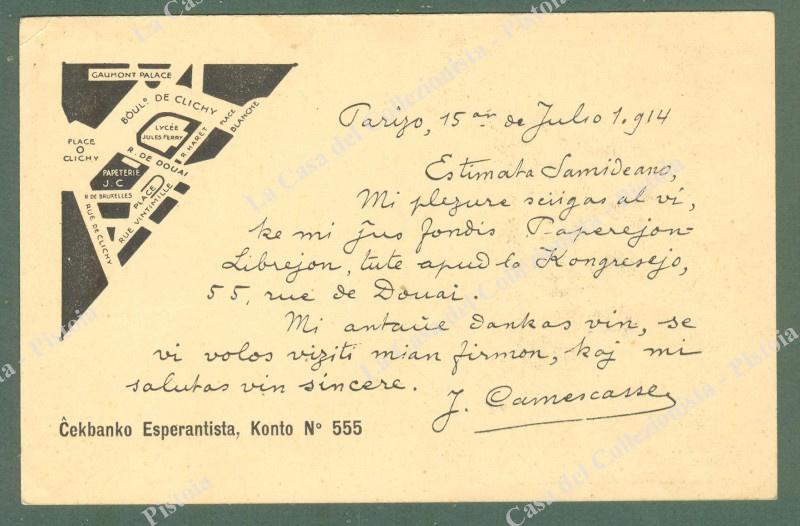 GAUMONT PALACE
BOULD DE CLICHY
PLACE BLANCHE
LYCÉE
JULES FERRY
R. HARET
PLACE
O
CLICHY
R. DE DOUAI
PAPETERIE
J. C
R. DE BRUXELLES
PLACE
VINTIMILLE
RUE
RUE DE CLICHY
Parizo, 15an de Julio 1.914
Estimata Samideano,
Mi plezure sciigas al vi,
ke mi ĵus fondis Paperejon-
Librejon, tute apud la Kongresejo,
55, rue de Douai.
Mi antaŭe dankas vin, se
vi volos viziti mian firmon, kaj mi
salutas vin sincere.
J. Camescasse
Ĉekbanko Esperantista, Konto No 555
La Casa del Collezionista - Pistoia